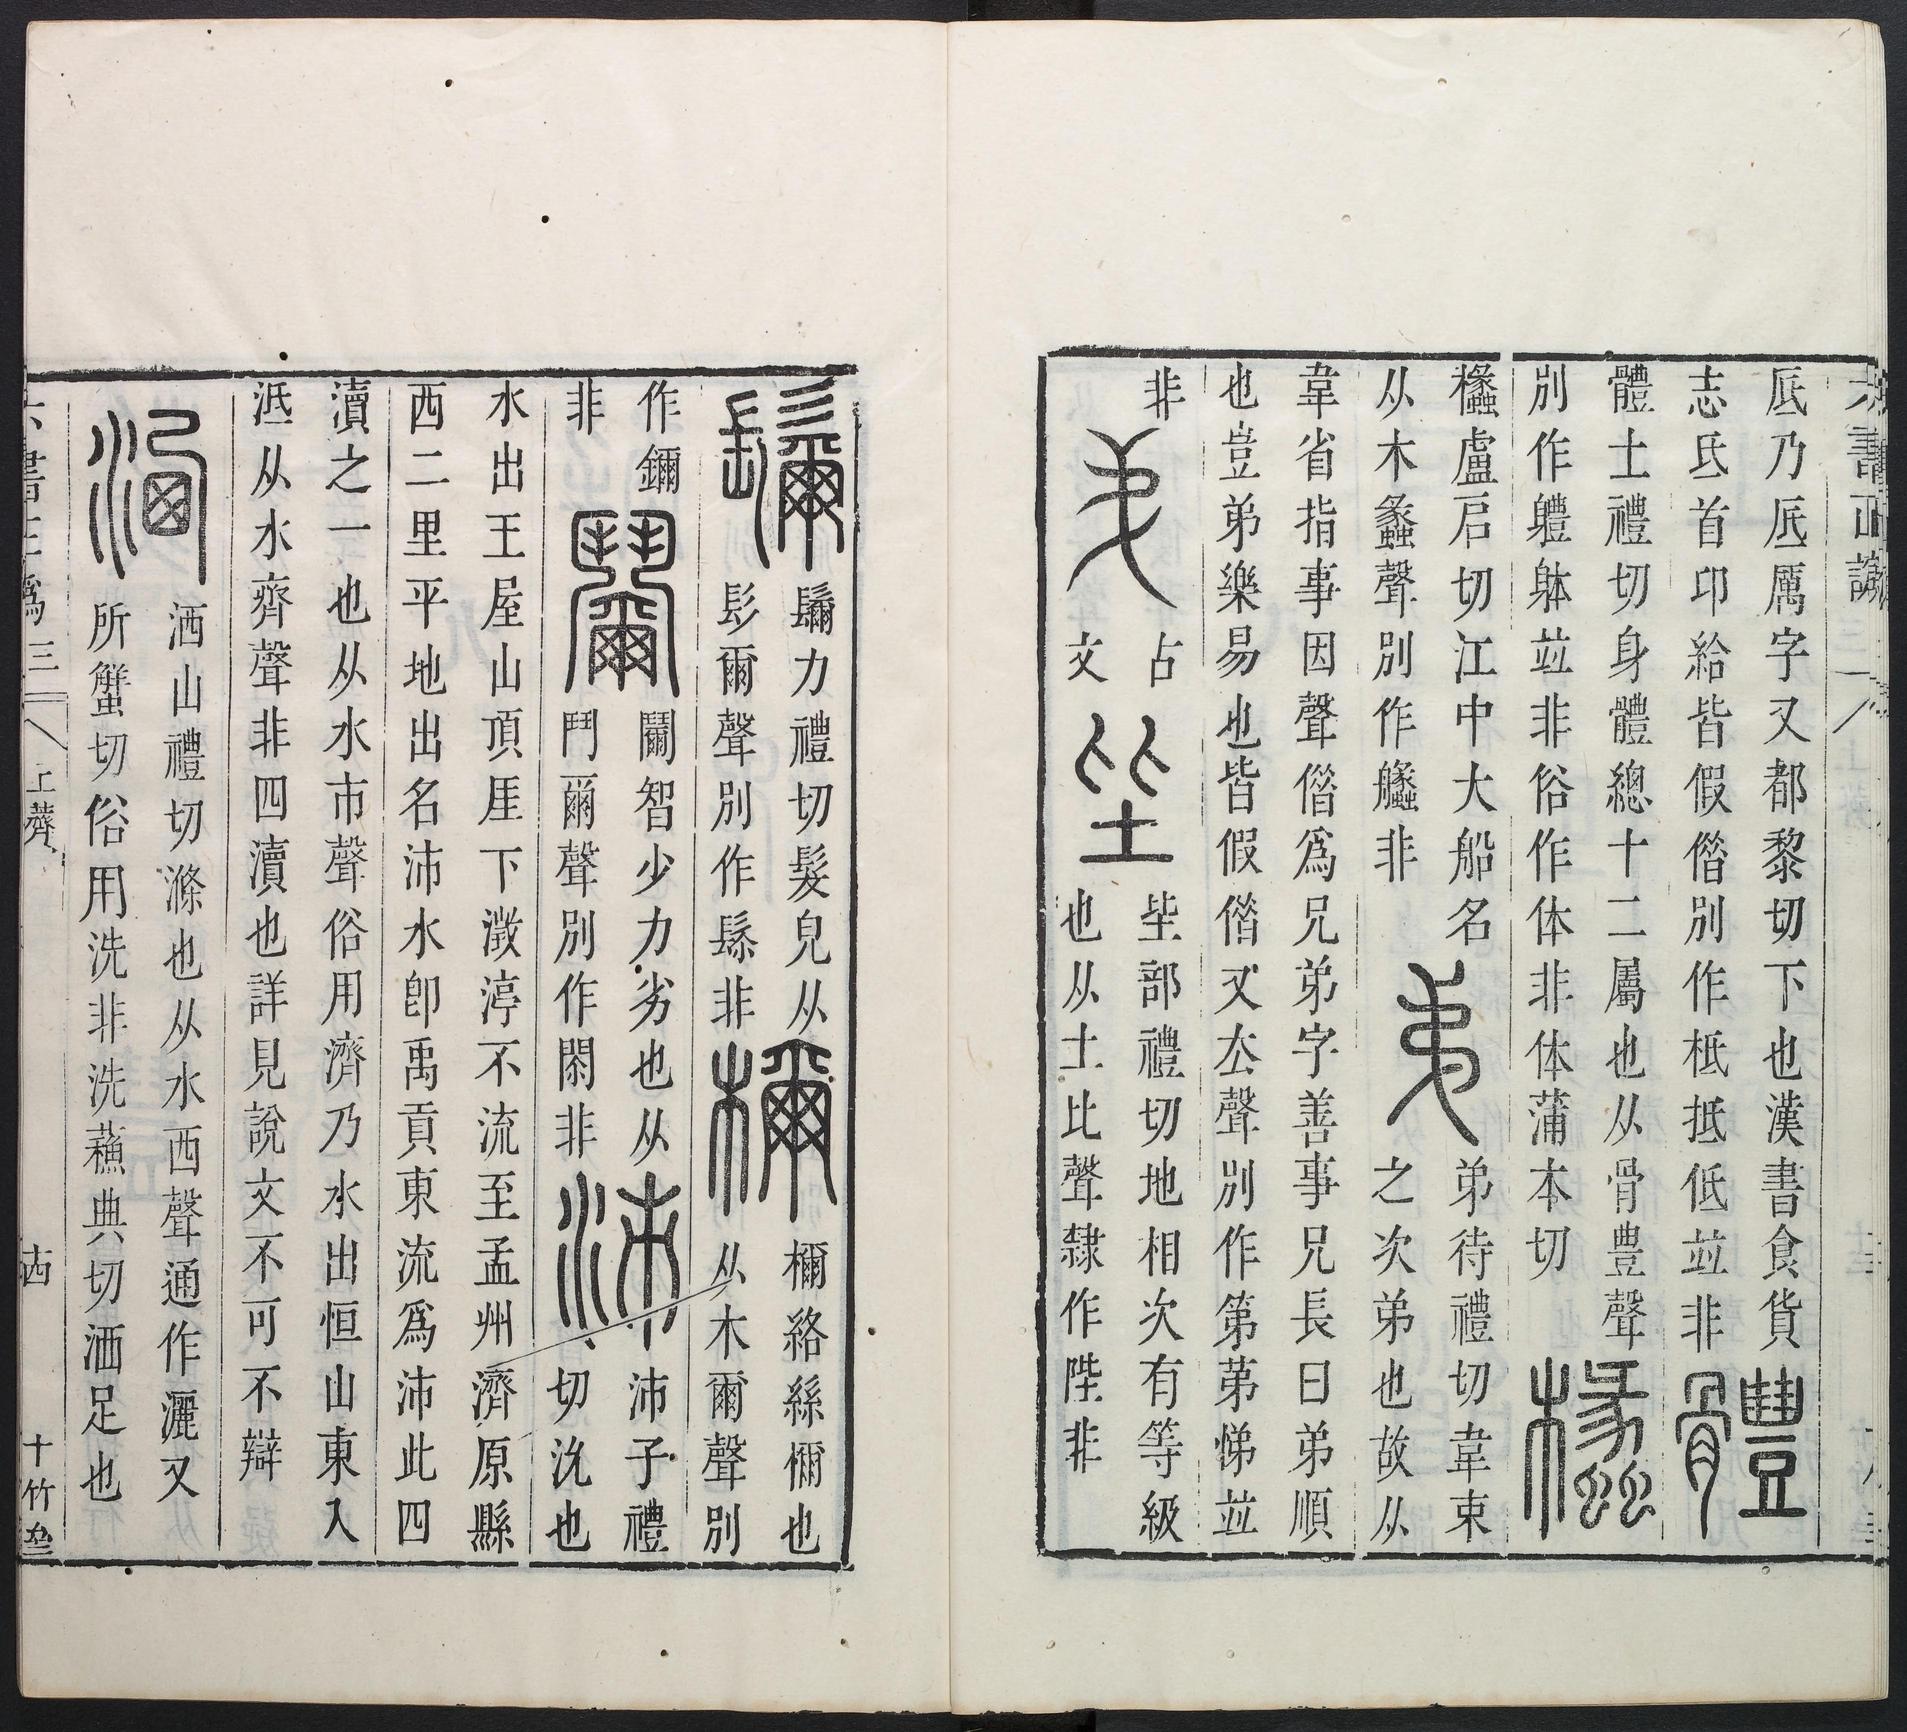 六書正譌
底乃底厲字又都黎切下也漢書食貨
志氐首卬給皆假借別作柢抵低竝非
體
體土禮切身體總十二屬也从骨豊聲
別作軆躰竝非俗作体非体蒲本切
欚
欚盧启切江中大船名
从木蠡聲別作艫非
弟
弟待禮切韋束
之次弟也故从
韋省指事因聲借爲兄弟字善事兄長曰弟順
也豈弟樂易也皆假借又去聲別作第苐悌竝
非
古
文
坒
坒部禮切地相次有等級
也从土比聲隸作陛非
鬗力禮切髮皃从
髟爾聲別作鬏非
檷
檷絡絲檷也
从木爾聲別
作鑈
非
鬭智少力劣也从
鬥爾聲別作閷非
沛
沛子禮
切沇也
水出王屋山頂厓下澂渟不流至孟州濟原縣
西二里平地出名沛水卽禹貢東流爲沛此四
瀆之一也从水巿聲俗用濟乃水出恒山東入
泜从水齊聲非四瀆也詳見說文不可不辯
洒
洒山禮切滌也从水西聲通作灑又
所蟹切俗用洗非洗蘓典切洒足也
六書正譌三 上薺 十竹齋